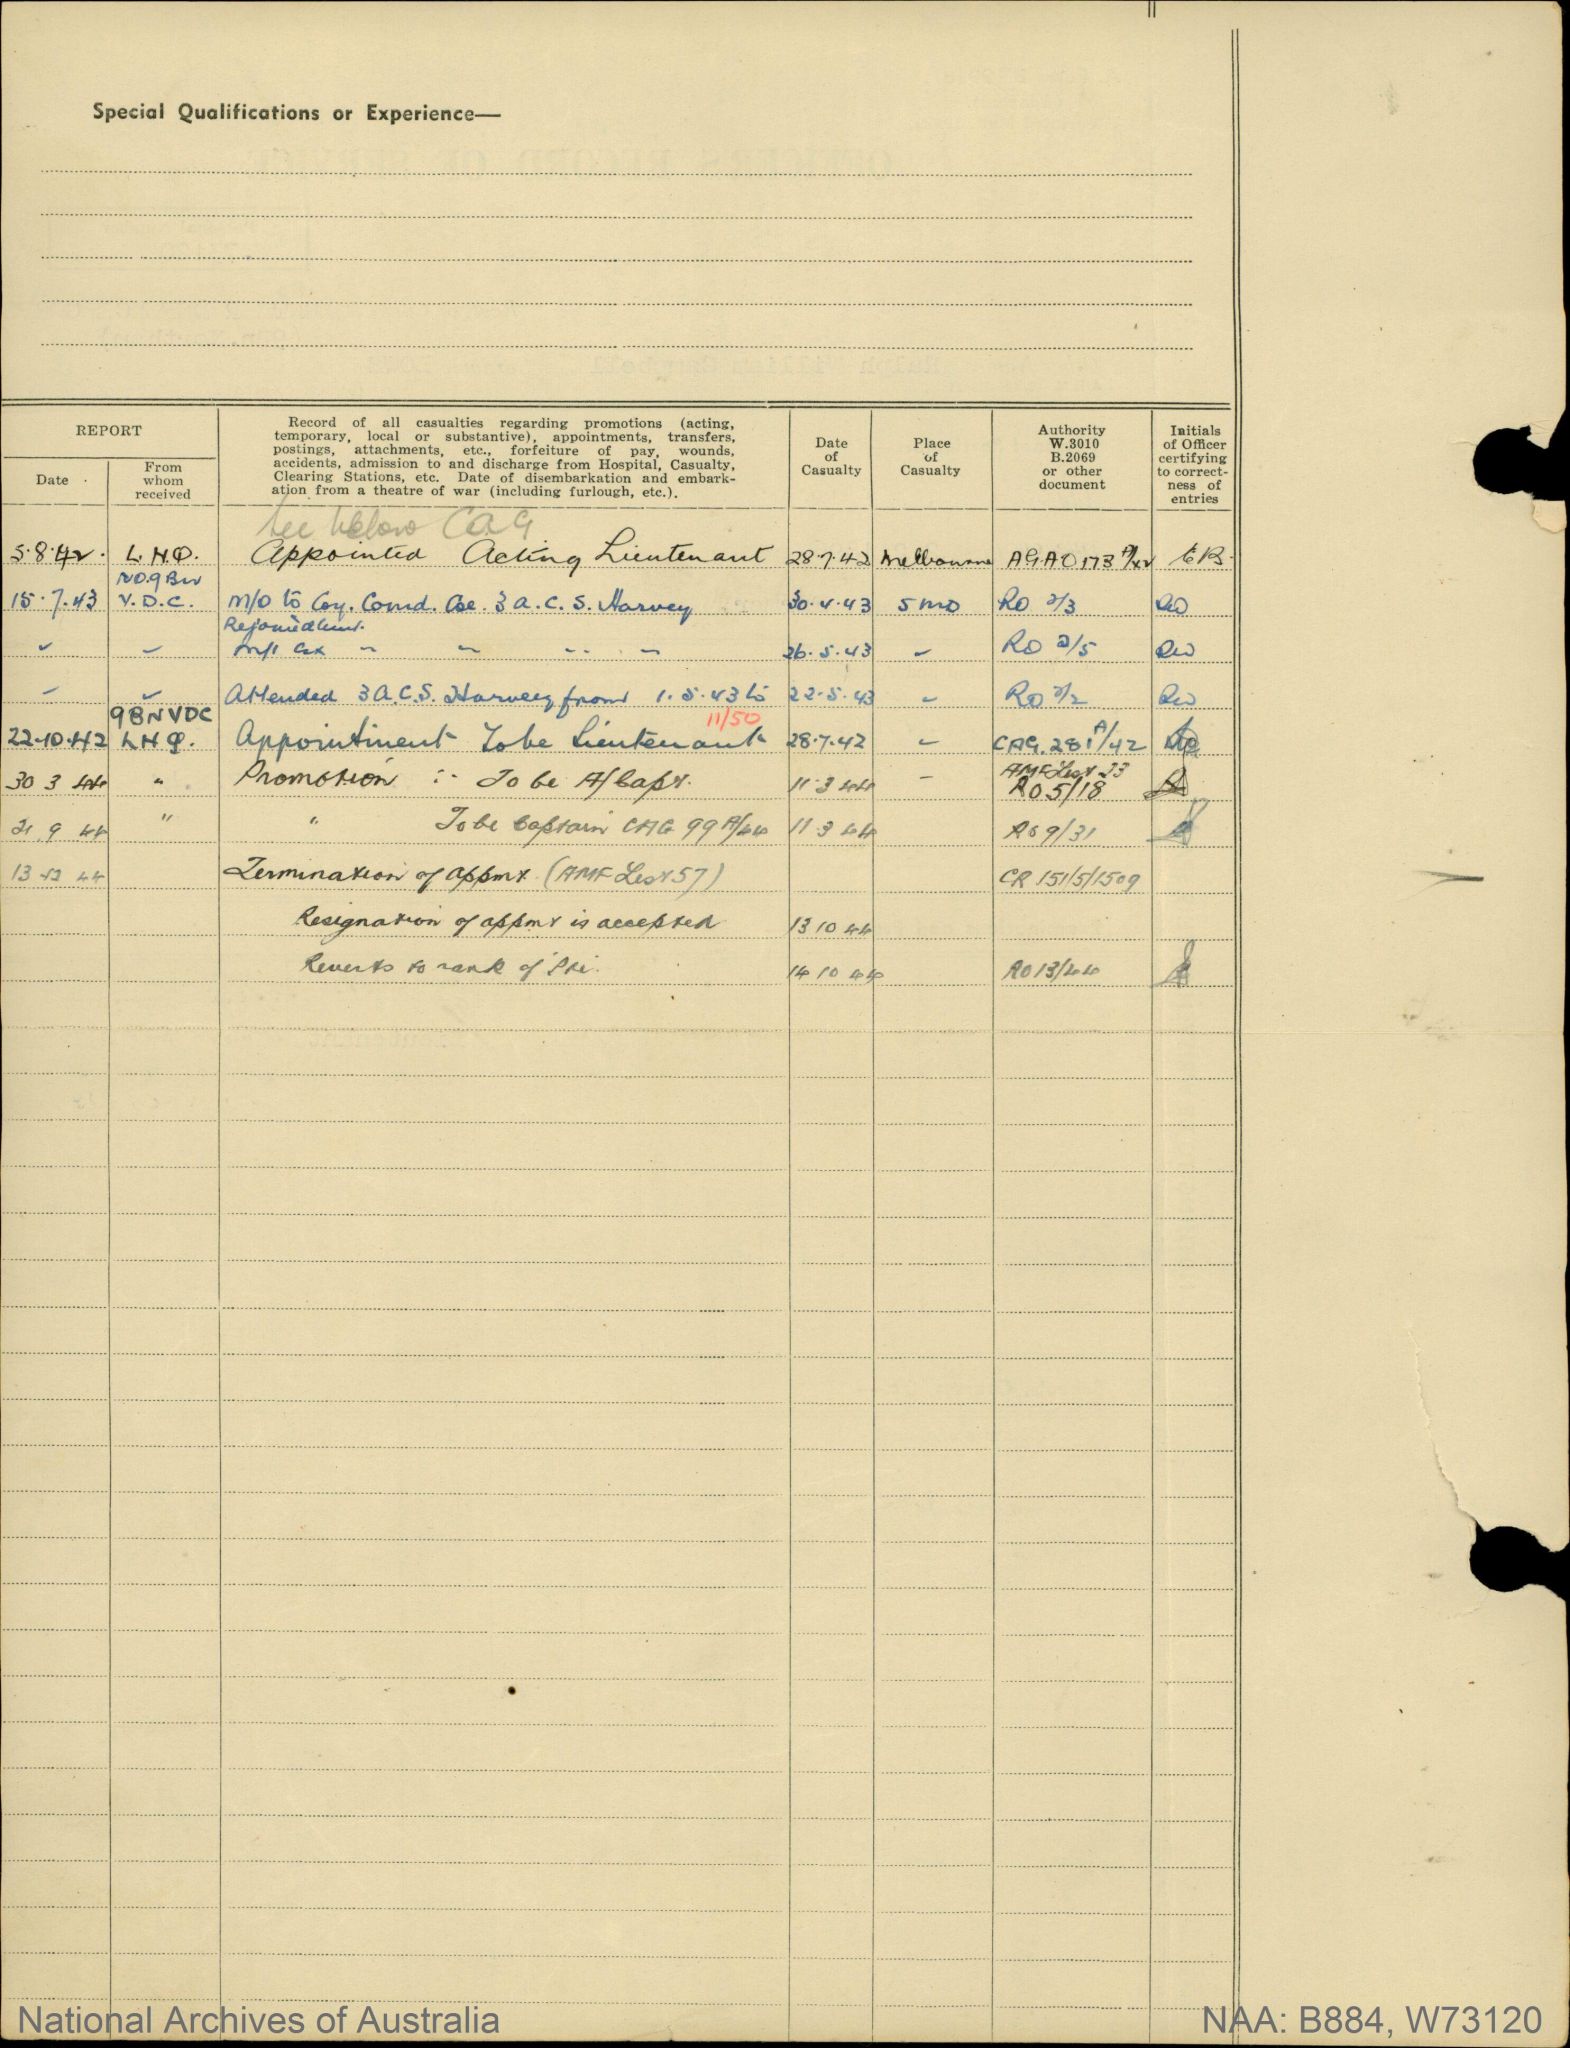 Special Qualifications or Experience—
REPORT
Date
From whom received
Record of all casualties regarding promotions (acting,
temporary, local or substantive), appointments, transfers,
postings, attachments, etc., forfeiture of pay, wounds,
accidents, admission to and discharge from Hospital, Casualty,
Clearing Stations, etc. Date of disembarkation and embark-
ation from a theatre of war (including furlough, etc.).
Date of Casualty
Place of Casualty
Authority W.3010 B.2069 or other document
Initials of Officer certifying to correct-ness of entries
See below CAG
5.8.42. L.H.Q. Appointed Acting Lieutenant 28.7.42 Melbourne AGAO 173
NO.9 Bn
15.7.43 V.D.C. M/O to Coy. Comd. Cse. 3 A.C.S. Harvey 30.4.43 5 MD RO 2/3
Rejoined
M/I ex " " " " 26.5.43 RO 2/5
Attended 3 A.C.S. Harvey from 1.5.43 to 22.5.43 RO 2/2
9BN VDC 11/50
22.10.42 L.H.Q. Appointment To be Lieutenant 28.7.42 CAG. 281A/42
AMF List 23
30 3 44 " Promotion :- To be A/Capt. 11.3.44 RO 5/18
21.9 44 " " To be Captain CAG 99 A/44 11 3 44 RO 9/31
13 12 44 Termination of appmt (AMF List 57) CR 151/5/1509
Resignation of appmt is accepted 13 10 44
Reverts to rank of Pte. 14 10 44 RO 13/44
National Archives of Australia
NAA: B884, W73120